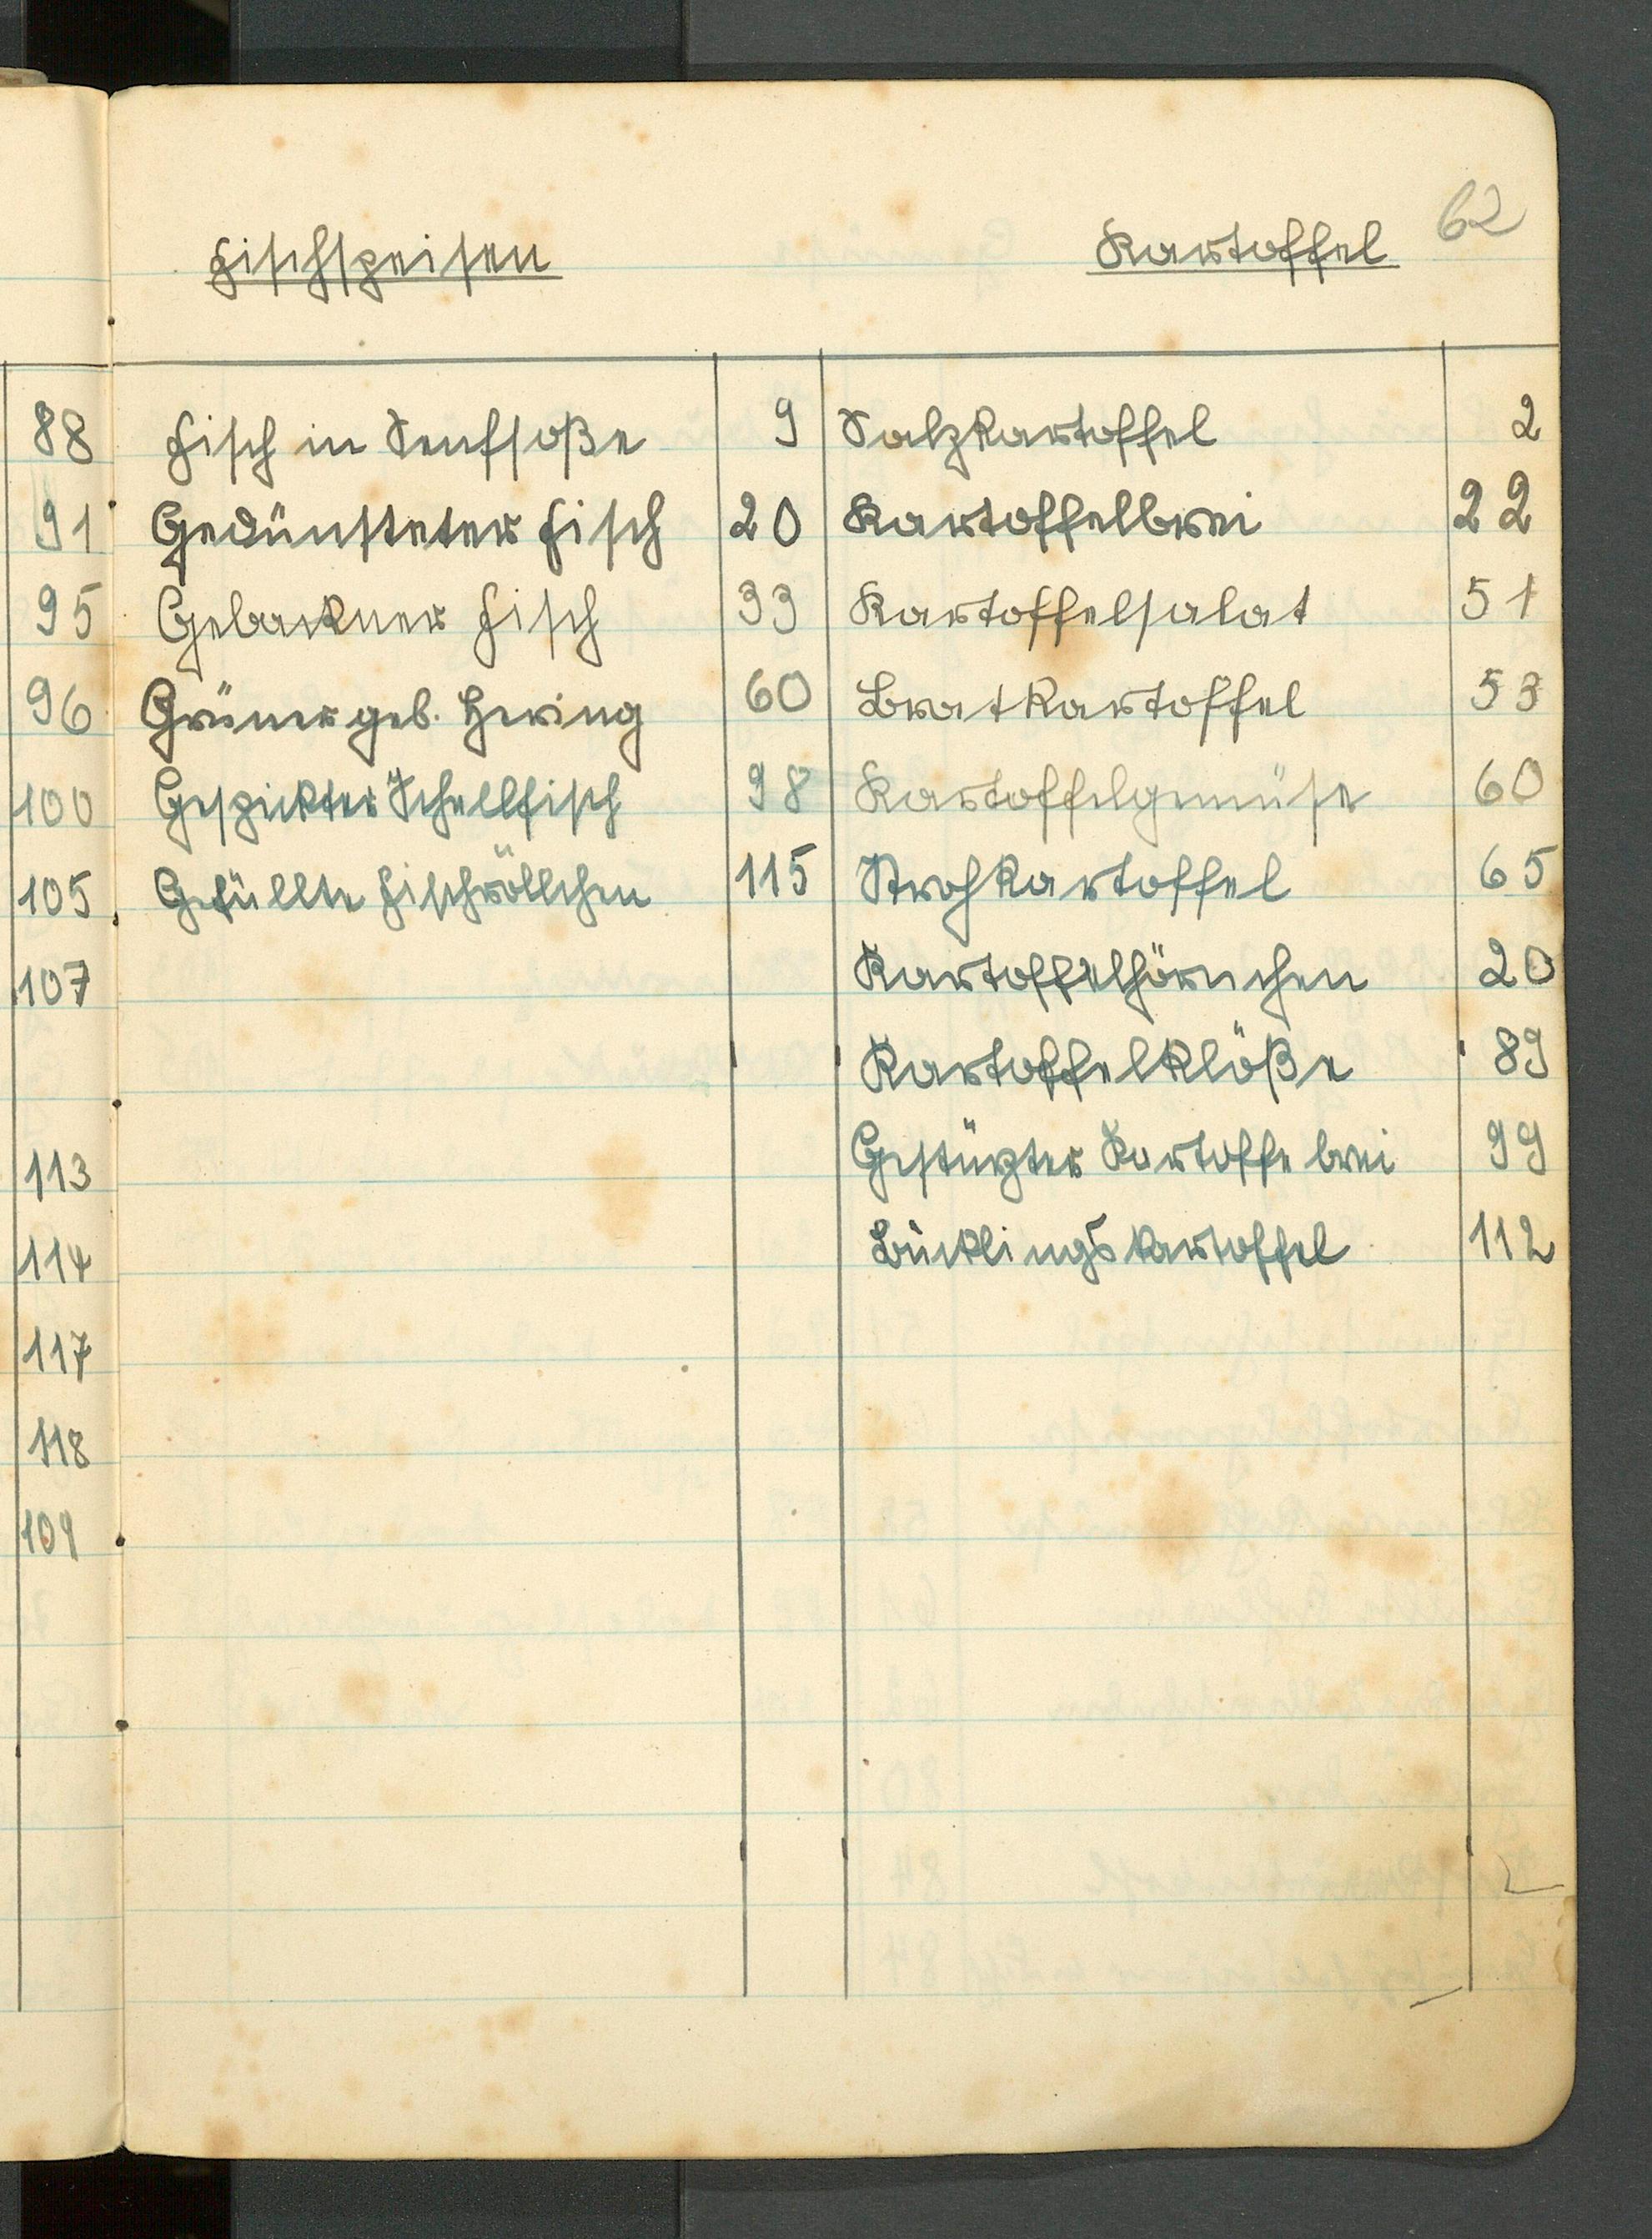 62
Fischspeisen Kartoffel
88 Fisch in Senfsoße 9 Salzkartoffel 2
91 Gedünsteter Fisch 20 Kartoffelbrei 22
95 Gebackner Fisch 33 Kartoffelsalat 51
96 Grüner geb. Hering 60 Bratkartoffel 53
100 Gespickter Schellfisch 98 Kartoffelgemüse 60
105 Gefüllte Fischröllchen 115 Strohkartoffel 65
107 Kartoffelhörnchen 20
Kartoffelklöße 89
113 Gestürzter Kartoffe brei 99
114 Bücklingskartoffel 112
117
118
109